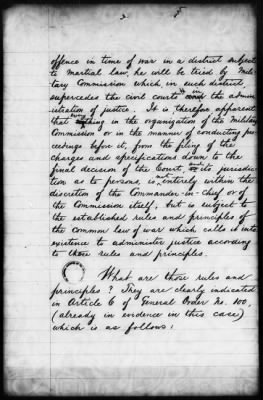 5
offence in time of war in a district subject
to martial law, he will be tried by Mili-
tary Commission which, in such district,
supercedes the civil courts in the admin-
istration of justice. It is, therefore apparent
that nothing in the organization of the Military
Commission or in the manner of conducting pro-
ceedings before it, from the filing of the
charges and specifications down to the
final decision of the Court, and its jurisdic-
tion as to persons, is entirely within the
discretion of the Commander-in-Chief or of
the Commission itself, but is subject to
the established rules and principles of
the common law of war which calls it into
existence to administer justice according
to those rules and principles.
What are those rules and
principles? They are clearly indicated
in Article 6 of General Order No. 100,
(already in evidence in this case)
which is as follows: